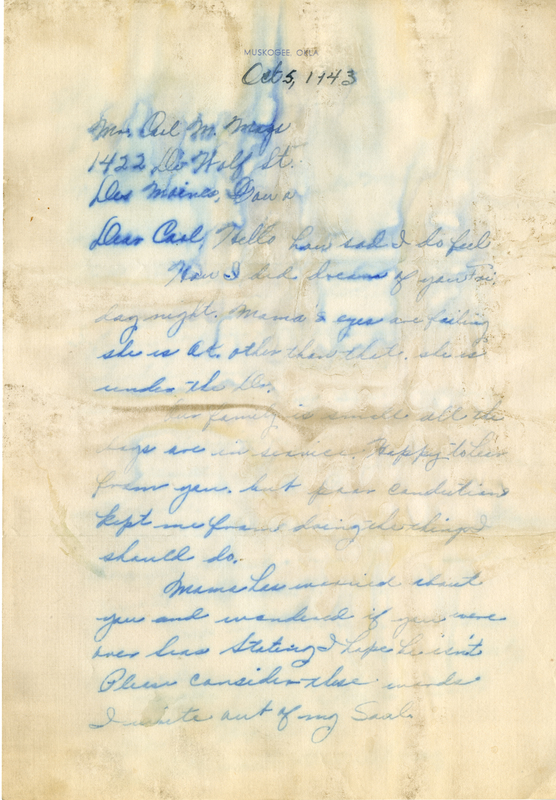 MUSKOGEE, OKLA
Oct 5, 1943
Carl M. Mays
1422 De Wolf St.
Des Moines, Iowa
Dear Carl, Hello how sad I do feel
Now I did dream of you
day night. Mama's eyes are failing
she is o.k. other than that. she is
under the Dr.
family is small all the
boys are in service. Happy to hear
from you. but poor condition
kept me from doing the things I
should do.
Mama has worried about
you and wondered if you were
over seas Stating I hope he isn't
Please consider these words
I write out of my Soul.